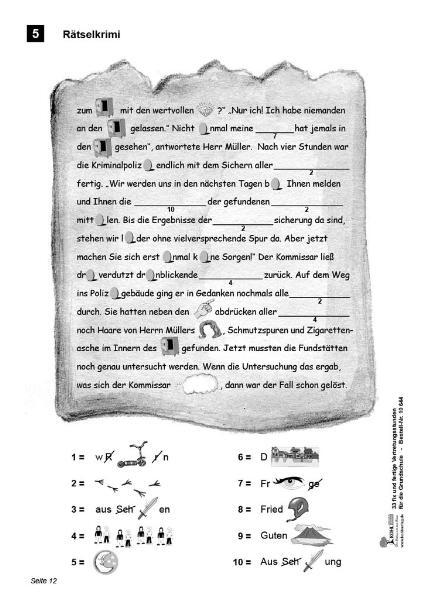 5 Rätselkrimi
zum mit den wertvollen ?" „Nur ich! Ich habe niemanden
an den gelassen." Nicht nmal meine ________ hat jemals in
7
den gesehen", antwortete Herr Müller. Nach vier Stunden war
die Kriminalpoliz endlich mit dem Sichern aller ________
2
fertig. „Wir werden uns in den nächsten Tagen b Ihnen melden
und Ihnen die ________ der gefundenen ________
10 2
mitt len. Bis die Ergebnisse der ________ sicherung da sind,
2
stehen wir l der ohne vielversprechende Spur da. Aber jetzt
machen Sie sich erst nmal k ne Sorgen!" Der Kommissar ließ
dr verdutzt dr nblickende ________ zurück. Auf dem Weg
4
ins Poliz gebäude ging er in Gedanken nochmals alle ________
2
durch. Sie hatten neben den abdrücken aller ________
4
noch Haare von Herrn Müllers , Schmutzspuren und Zigaretten-
asche im Innern des gefunden. Jetzt mussten die Fundstätten
noch genau untersucht werden. Wenn die Untersuchung das ergab,
was sich der Kommissar , dann war der Fall schon gelöst.
1 = w R r n
2 =
3 = aus Seh en
4 =
5 =
6 = D
7 = Fr ge
8 = Fried
9 = Guten
10 = Aus Seh ung
Seite 12
33 fix und fertige Vertretungsstunden
für die Grundschule - Bestell-Nr. 10 644
KOHL